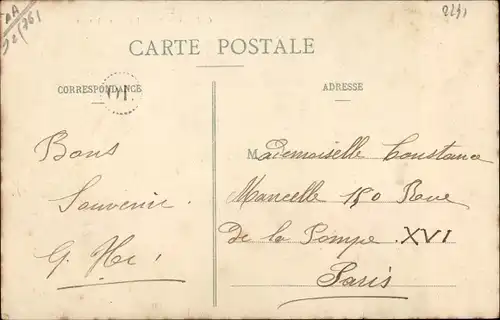 CARTE POSTALE
CORRESPONDANCE
ADRESSE
Bons
Souvenir
Mademoiselle Constance
Marcelle 150 Rue
De la Pompe. XVI
Paris